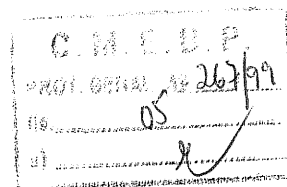 C. M. C. U. P.
PROT. GERAL Nº 267/99
fls. 05
a)